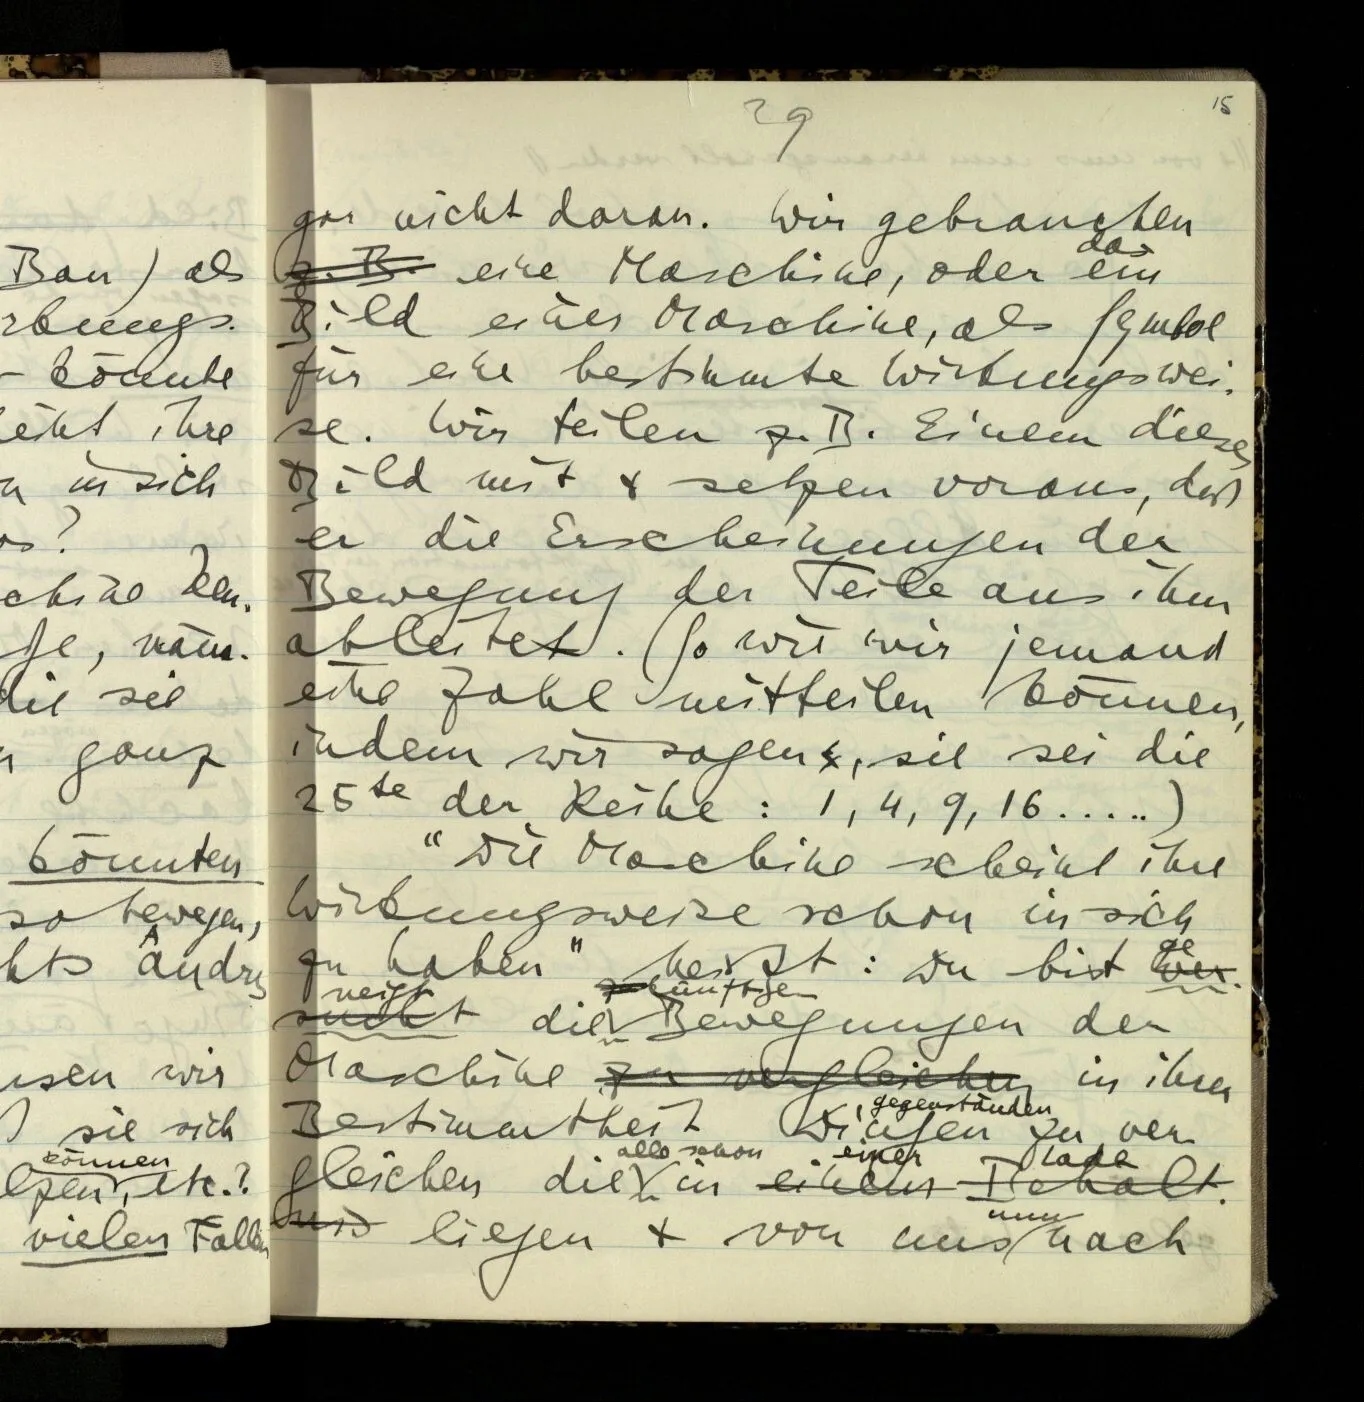 29
15
gar nicht daran. Wir gebrauchen
z.B. eine Maschine, oder ein
das
Bild einer Maschine, als Symbol
für eine bestimmte Wirkungswei-
se. Wir teilen z.B. Einem dieses
Bild mit & setzen voraus, daß
er die Erscheinungen der
Bewegung der Teile aus ihm
ableitet. (So wie wir jemand
eine Zahl mitteilen können,
indem wir sagen, sie sei die
25te der Reihe: 1, 4, 9, 16.....)
"Die Maschine scheint ihre
Wirkungsweise schon in sich
zu haben" heißt: Du bist ver-
ge
neigt künftigen
sucht die Bewegungen der
Maschine zu vergleichen in ihrer
Bestimmtheit Dingen zu ver-
gegenständen
alle schon einer Lade
gleichen die in einem Behält-
nis liegen & von uns nach
nun
Bau) als
rkungs-
– könnte
ihre
in sich
?
chine
, näm-
die sie
ganz
könnten
so bewegen,
Andres
wir
sie sich
können
, etc.?
vielen Fällen